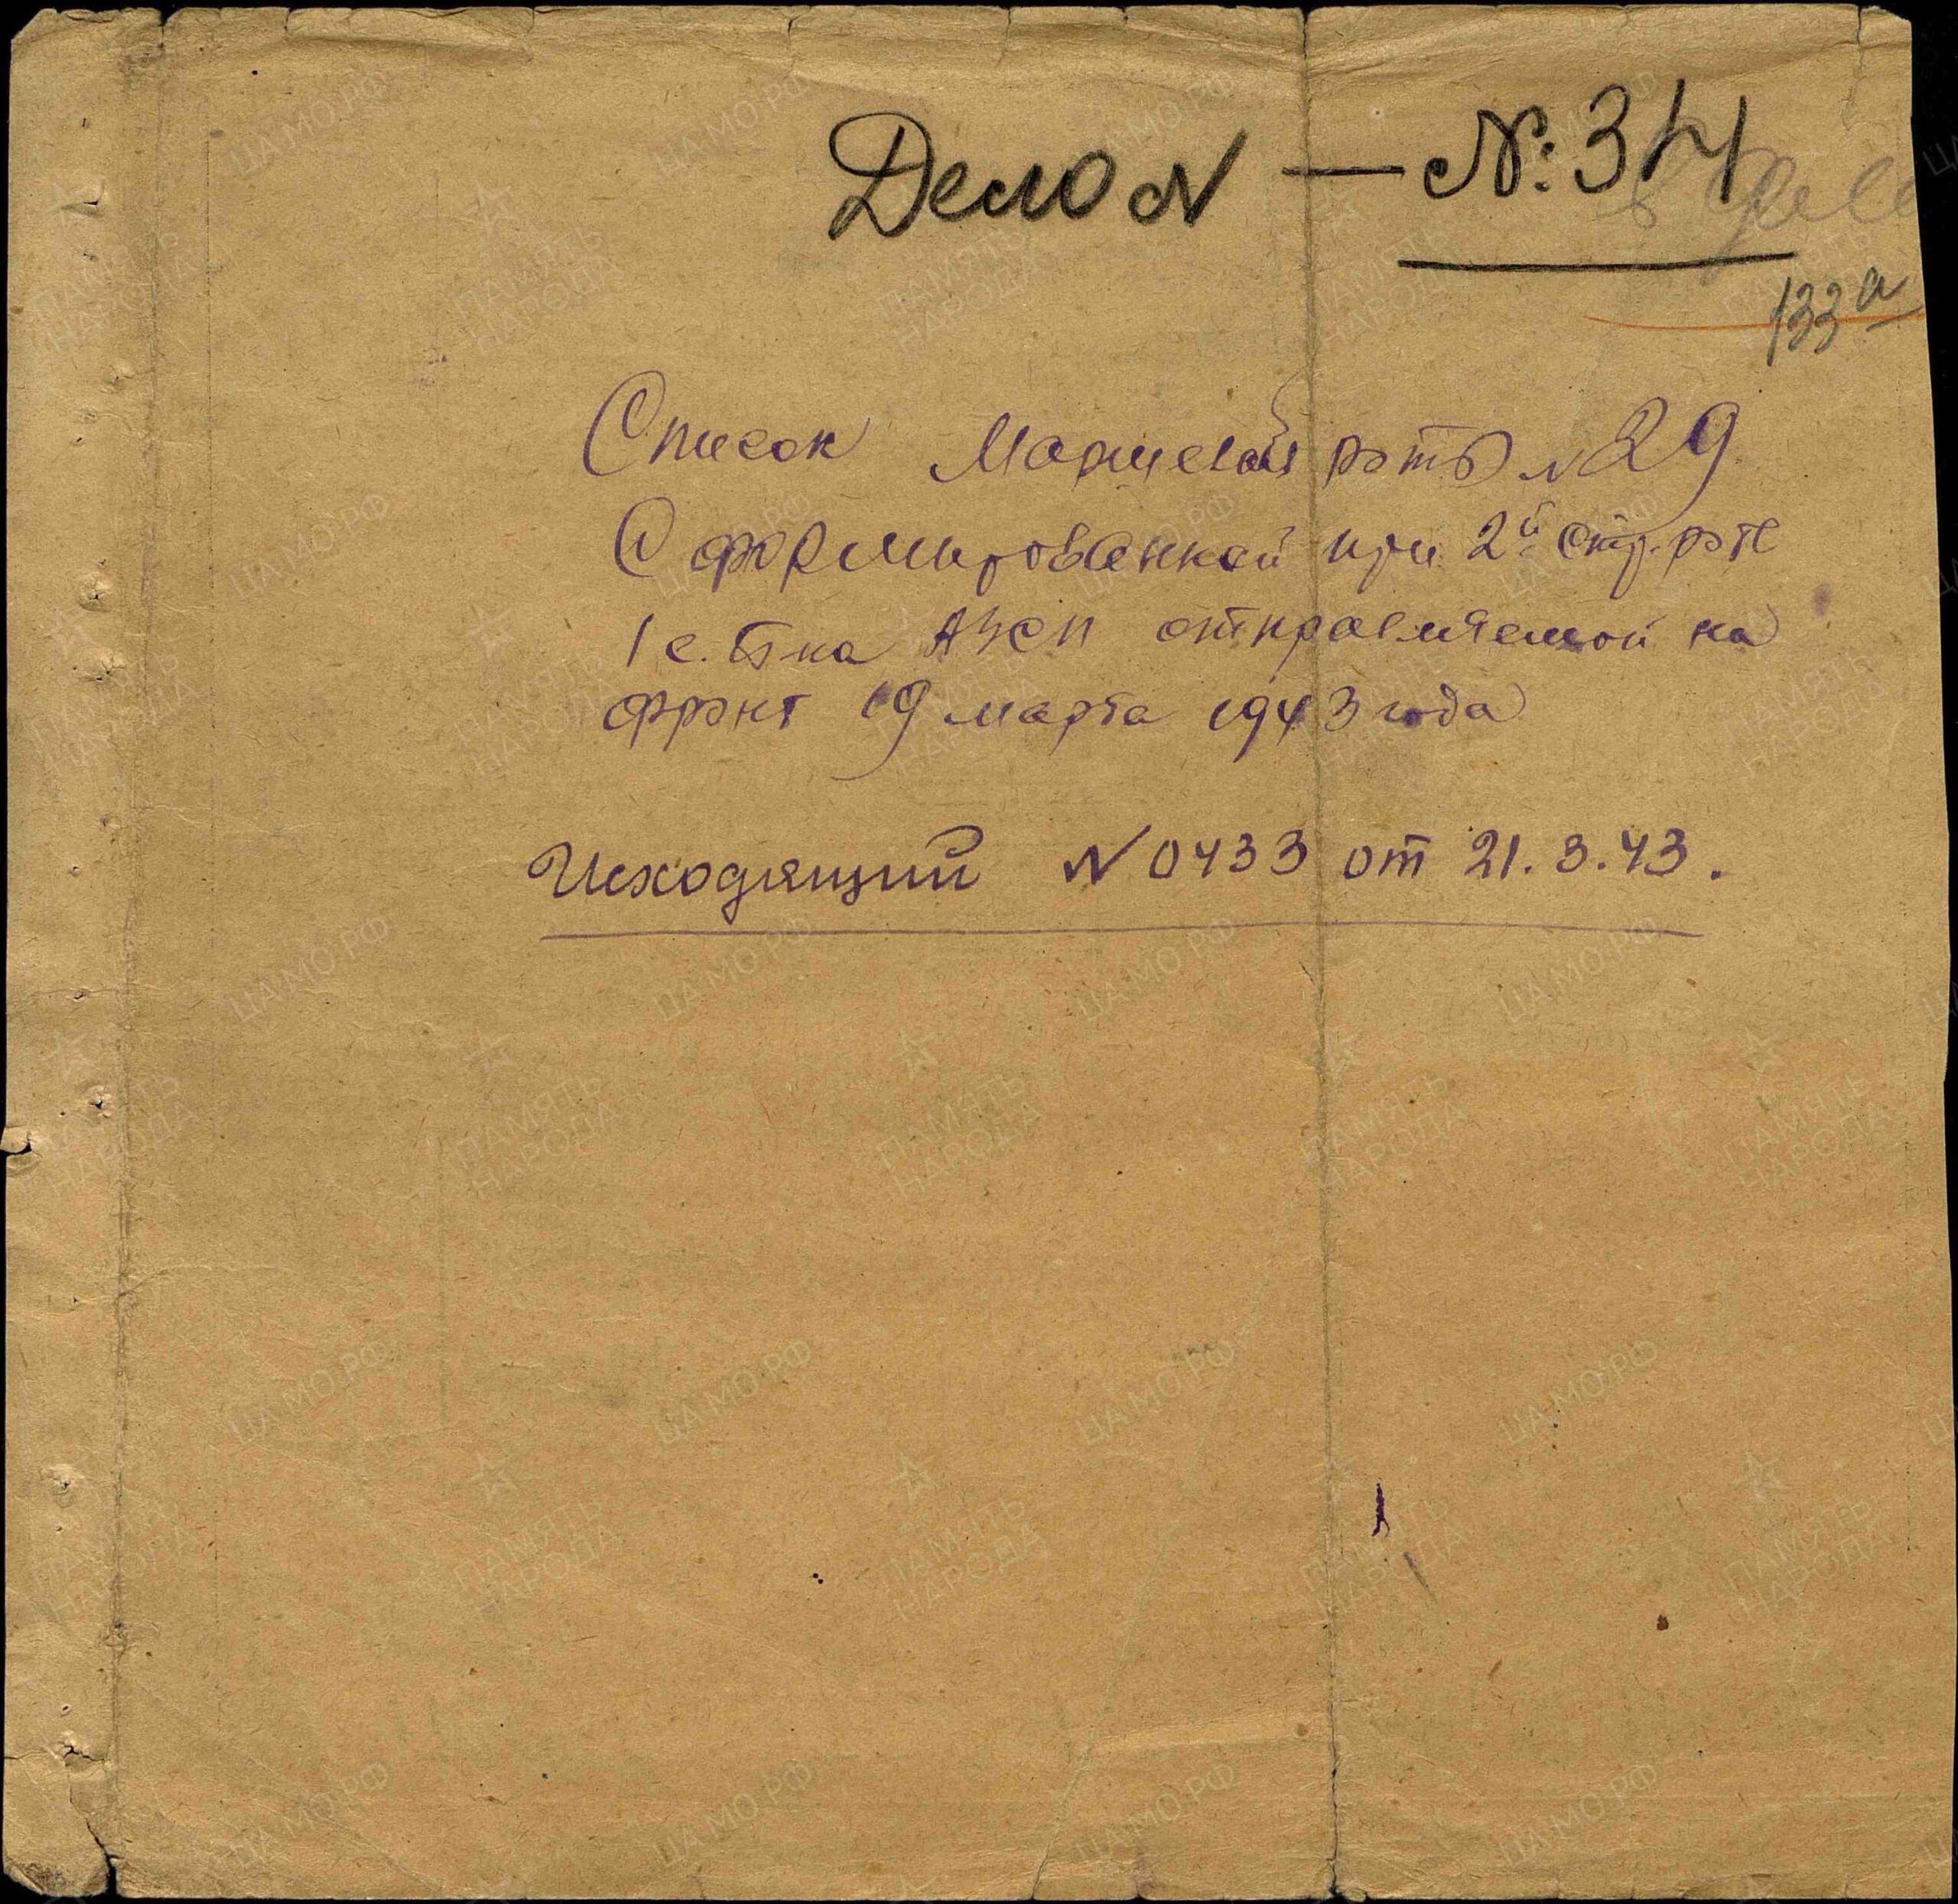 Дело N — №: 34
в дело
133а
Список Маршевой роты N 29
Сформированной при 2й стр. роте
1 с. б-на АЗСП отправляемой на
фронт 19 марта 1943 года
Исходящий N 0433 от 21.3.43.